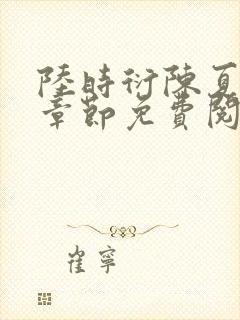 陸時衍陳夏
章節免費閱
崔寧